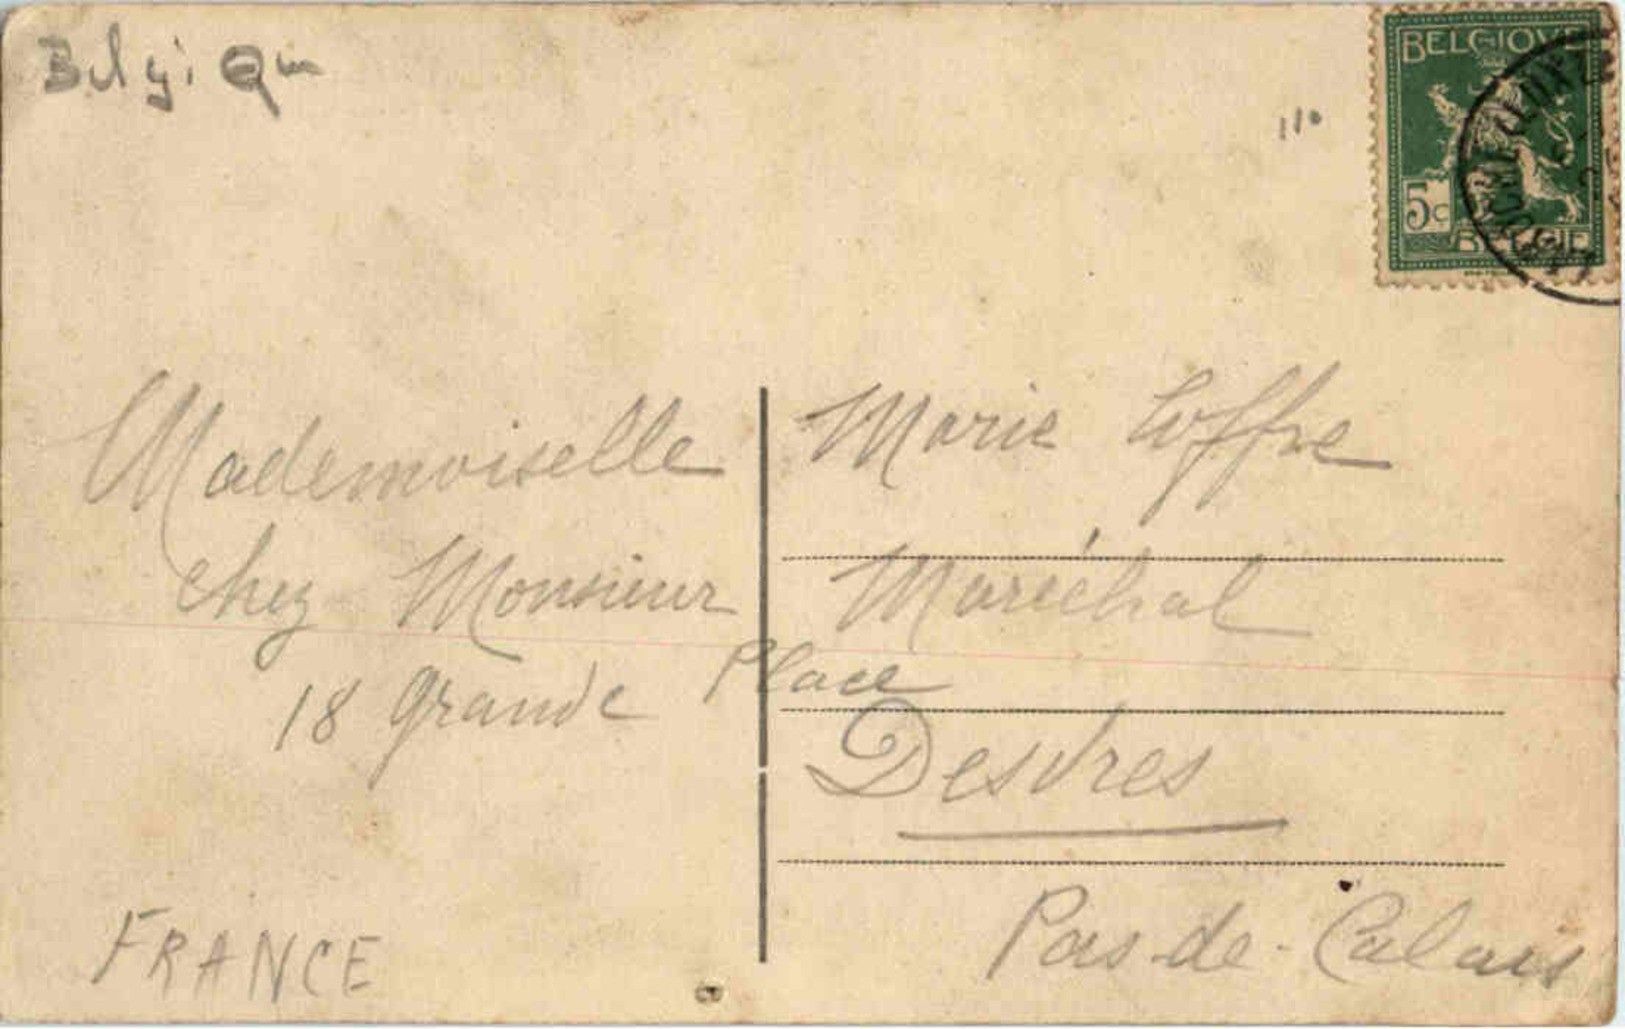 Belgique
110
BELGIQUE
5c
BELGIË
Mademoiselle Marie Loffre
chez Monsieur Maréchal
18 Grande Place
Desvres
Pas-de-Calais
FRANCE